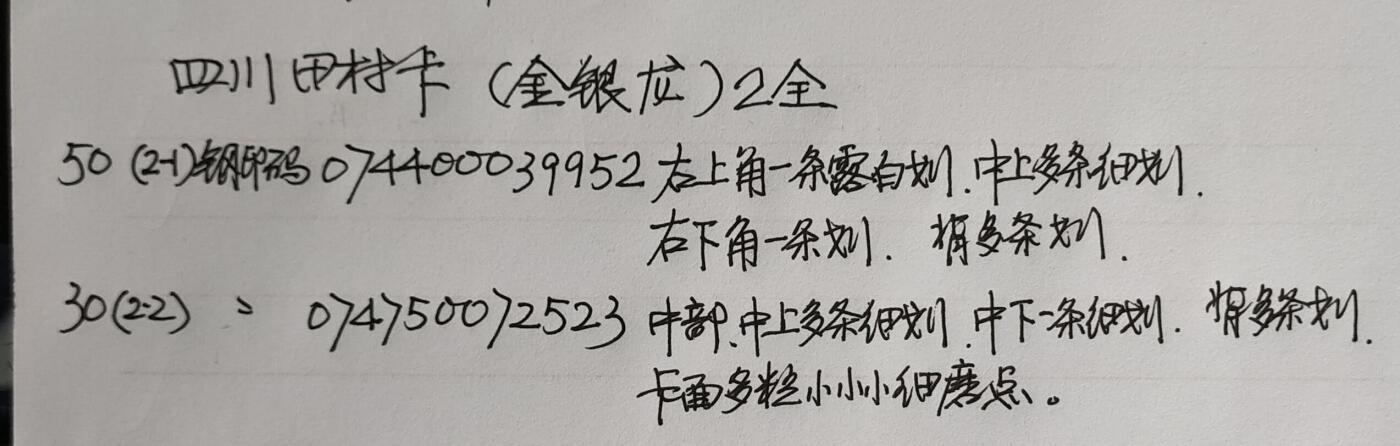 四川田村卡（金银龙）2全
50 (2-1)钢印码 074400039952 右上角一条露白划.中上多条细划.
右下角一条划. 背多条划.
30(2-2) 〃 074750072523 中部.中上多条细划.中下一条细划. 背多条划.
卡面多粒小小小细磨点。